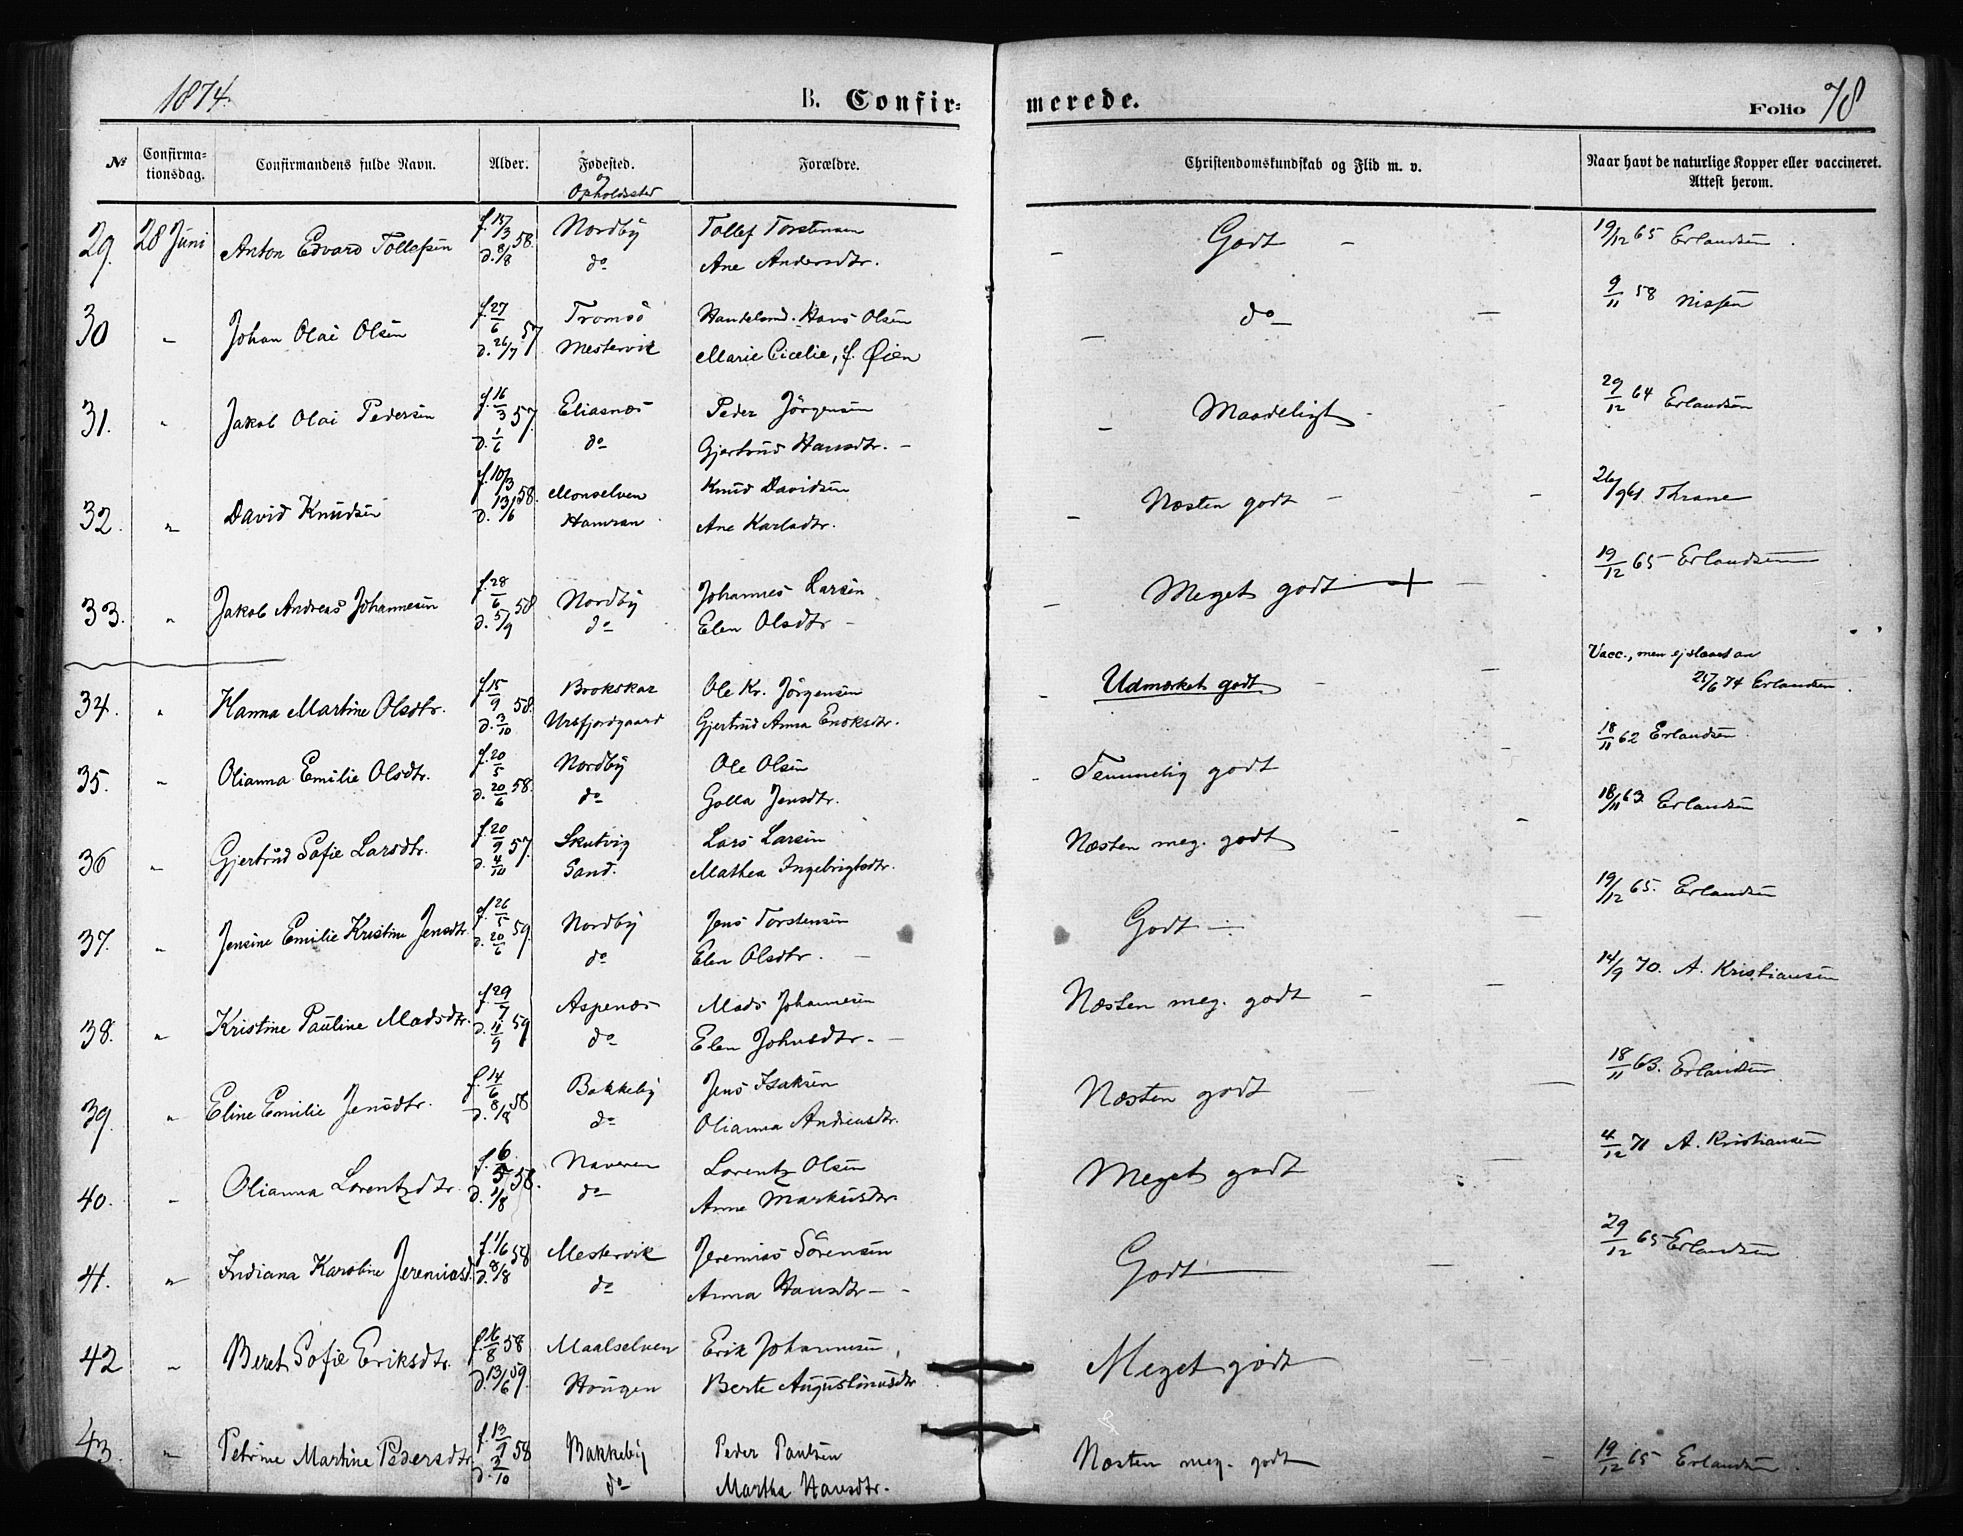 1874.
B. Confirmerede.
Folio 78
No Confirmationsdag. Confirmandens fulde Navn. Alder. Fødested. og Opholdssted Forældre. Christendomskundskab og Flid m. v. Naar havt de naturlige Kopper eller vaccineret. Attest herom.
29. 28 Juni Anton Edvard Tollefsen f. 15/3 58. Nordby Tollef Torstensen Godt 19/12 65 Erlandsen.
d. 8/8 do Ane Andersdtr.
30 " Johan Olai Olsen f. 27/6 57 Tromsö Handelsmd. Hans Olsen do 9/11 58 Nissen
d. 26/7 Mestervik Marie Cicelie, f. Øien
31. " Jakob Olai Pedersen f. 16/3 57. Eliasnæs Peder Jörgensen Maadeligt 29/12 64 Erlandsen
d. 1/6 do Gjertrud Hansdtr.
32. " David Knudsen f. 10/3 58. Monselven Knud Davidsen Næsten godt 26/9 61. Thrane
d. 13/6 Hamran Ane Karlsdtr.
33. " Jakob Andreas Johannesen f. 28/6 58 Nordby Johannes Larsen Meget godt + 19/12 65 Erlandsen
d. 5/9 do Elen Olsdtr
34. " Hanna Martine Olsdtr. f. 15/9 58. Brokskar Ole Kr. Jörgensen Udmærket godt Vacc., men ej slaaet an
d. 3/10 Ursfjordgaard Gjertrud Anna Enoksdtr. 25/6 74 Erlandsen.
35. " Olianna Emilie Olsdtr. f. 20/5 58. Nordby Ole Olsen Temmelig godt 18/11 62 Erlandsen
d. 20/6 do Golla Jensdtr.
36 " Gjertrud Sofie Larsdtr. f. 20/9 57. Skutvig Lars Larsen Næsten meg. godt 18/11 63. Erlandsen
d. 4/10 Sand. Mathea Ingebrigtsdtr.
37. " Jensine Emilie Kristine Jensdtr f. 26/5 59. Nordby Jens Torstensen Godt 19/12 65. Erlandsen
d. 20/6 do Elen Olsdtr.
38. " Kristine Pauline Madsdtr. f. 29/7 59 Aspenæs Mads Johannesen Næsten meg. godt 14/9 70. A. Kristiansen
d. 11/9 do Elen Johnsdtr.
39. " Eline Emilie Jensdtr. f. 14/6 58 Bakkeby Jens Isaksen Næsten godt 18/11 63. Erlandsen
d. 8/8 do Olianna Andreasdtr.
40. " Olianna Lorentzdtr. f. 6/5 58. Naveren Lorentz Olsen Meget godt 4/12 71 A. Kristiansen
d. 1/8 do Anne Markusdtr
41. " Indiana Karoline Jeremiasd. f. 1/6 58 Mestervik Jeremias Sörensen Godt 29/12 65 Erlandsen
d. 8/8 do Anna Hansdtr
42 " Beret Sofie Eriksdtr. f. 16/8 58 Maalselven Erik Johannesen Meget godt
d. 13/6 59. Hougen Berte Augustinusdtr
43. " Petrine Martine Pedersdtr f. 13/9 58 Bakkeby Peder Paulsen Næsten meg. godt 19/12 65 Erlandsen.
d. 3/10 do Martha Hansdtr.